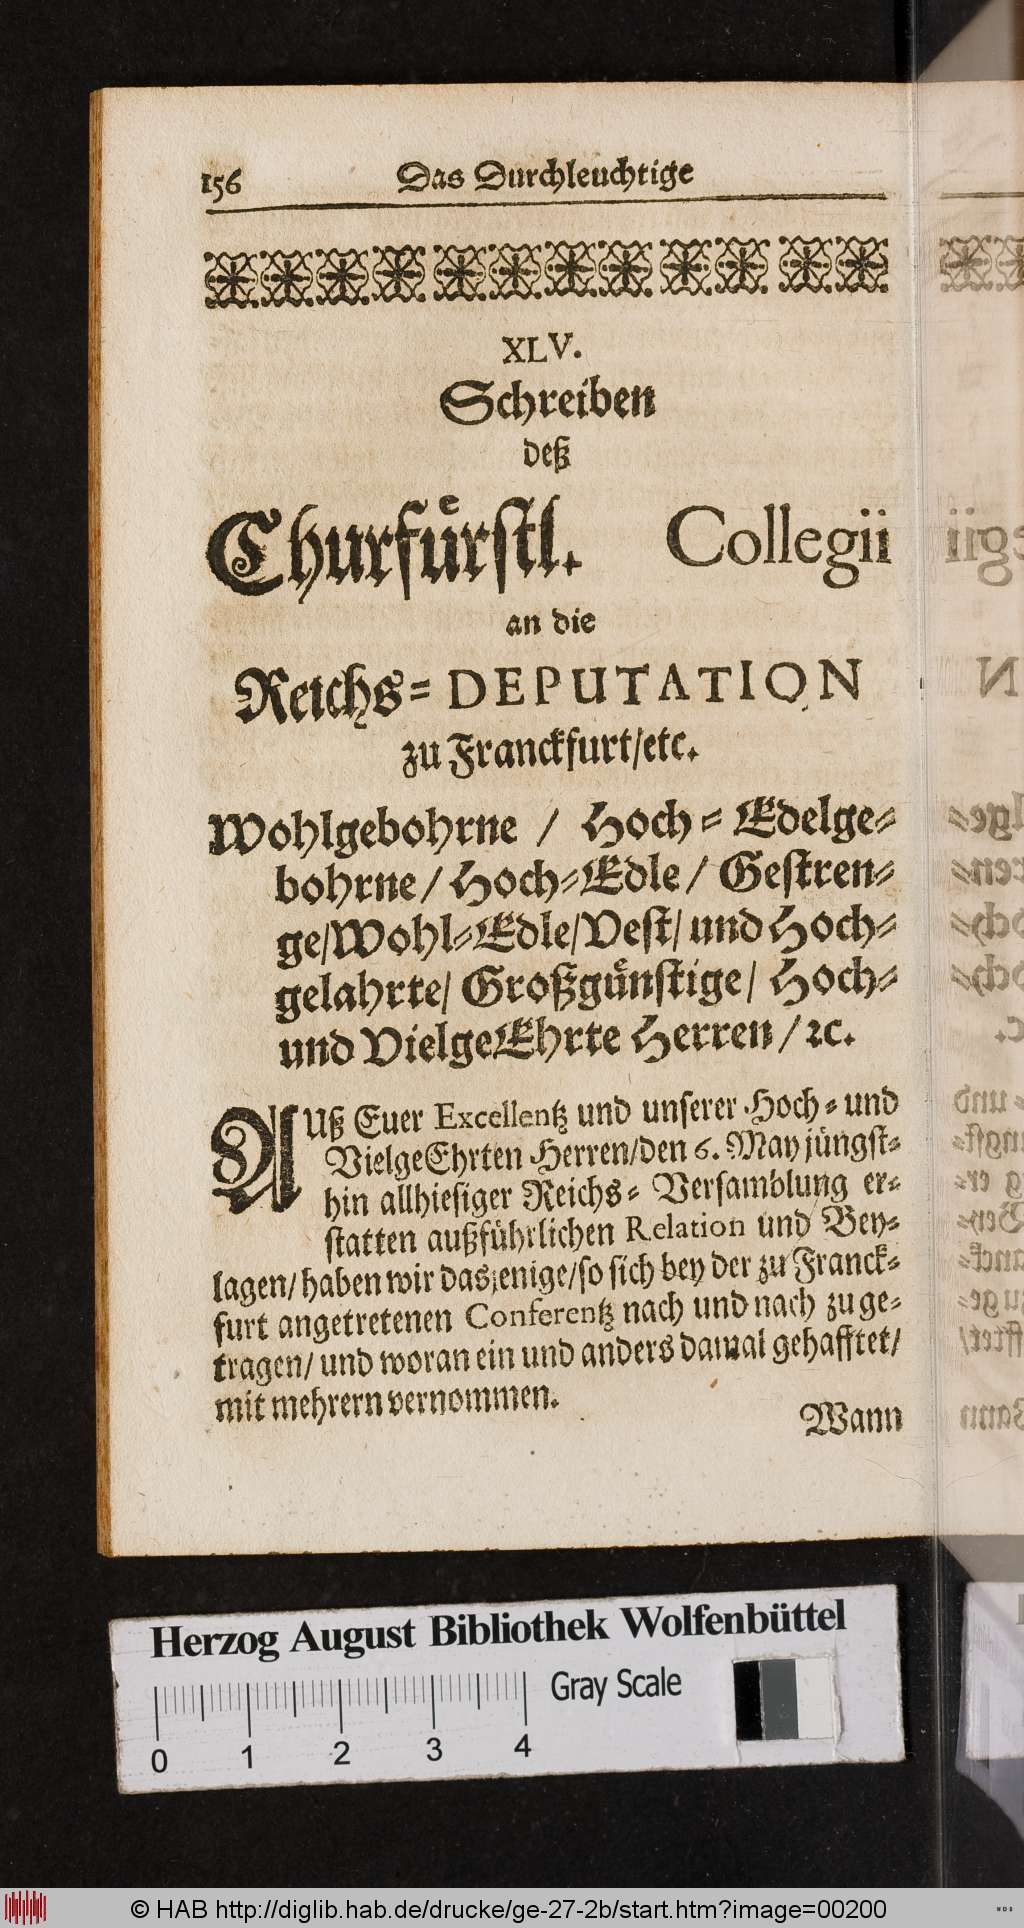 156 Das Durchleuchtige
XLV.
Schreiben
deß
Churfürstl. Collegii
an die
Reichs-DEPUTATION
zu Franckfurt/etc.
Wohlgebohrne / Hoch-Edelge-
bohrne / Hoch-Edle / Gestren-
ge/Wohl-Edle/Vest/ und Hoch-
gelahrte/ Großgünstige/ Hoch-
und VielgeEhrte Herren / ꝛc.
AUß Euer Excellentz und unserer Hoch- und
VielgeEhrten Herren/den 6. May jüngst-
hin allhiesiger Reichs- Versamblung er-
statten außführlichen Relation und Bey-
lagen/haben wir dasjenige/so sich bey der zu Franck-
furt angetretenen Conferentz nach und nach zu ge-
tragen/ und woran ein und anders damal gehafftet/
mit mehrern vernommen.
Wann
Herzog August Bibliothek Wolfenbüttel
Gray Scale
0 1 2 3 4
© HAB http://diglib.hab.de/drucke/ge-27-2b/start.htm?image=00200